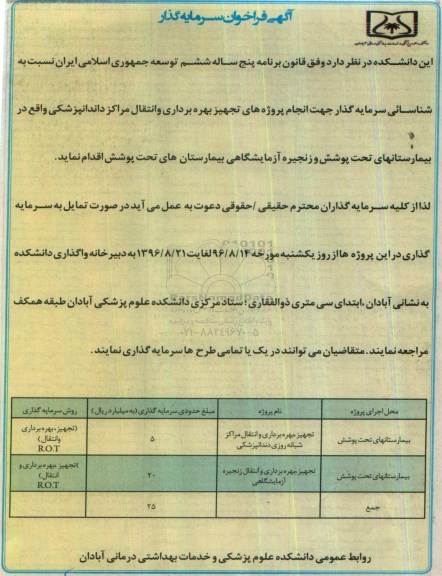 آگهی فراخوان سرمایه گذار
این دانشکده در نظر دارد وفق قانون برنامه پنج ساله ششم توسعه جمهوری اسلامی ایران نسبت به
شناسائی سرمایه گذار جهت انجام پروژه های تجهیز بهره برداری وانتقال مراکز داندانپزشکی واقع در
بیمارستانهای تحت پوشش و زنجیره آزمایشگاهی بیمارستان های تحت پوشش اقدام نماید.
لذا از کلیه سرمایه گذاران محترم حقیقی /حقوقی دعوت به عمل می آید در صورت تمایل به سرمایه
گذاری در این پروژه ها از روز یکشنبه مورخه ۹۶/۸/۱۴ لغایت ۱۳۹۶/۸/۲۱ به دبیرخانه واگذاری دانشکده
به نشانی آبادان ،ابتدای سی متری ذوالفقاری، ستاد مرکزی دانشکده علوم پزشکی آبادان طبقه همکف
۰۲۱-۸۸۳۴۹۶۷۰-۵
مراجعه نمایند. متقاضیان می توانند در یک یا تمامی طرح ها سرمایه گذاری نمایند.
محل اجرای پروژه نام پروژه مبلغ حدودی سرمایه گذاری (به میلیارد ریال) روش سرمایه گذاری
بیمارستانهای تحت پوشش تجهیز بهره برداری و انتقال مراکز شبانه روزی دندانپزشکی ۵ (تجهیز، بهره برداری وانتقال) R.O.T
بیمارستانهای تحت پوشش تجهیز بهره برداری و انتقال زنجیره آزمایشگاهی ۲۰ )تجهیز بهره برداری و انتقال) R.O.T
جمع - ۲۵
روابط عمومی دانشکده علوم پزشکی و خدمات بهداشتی درمانی آبادان